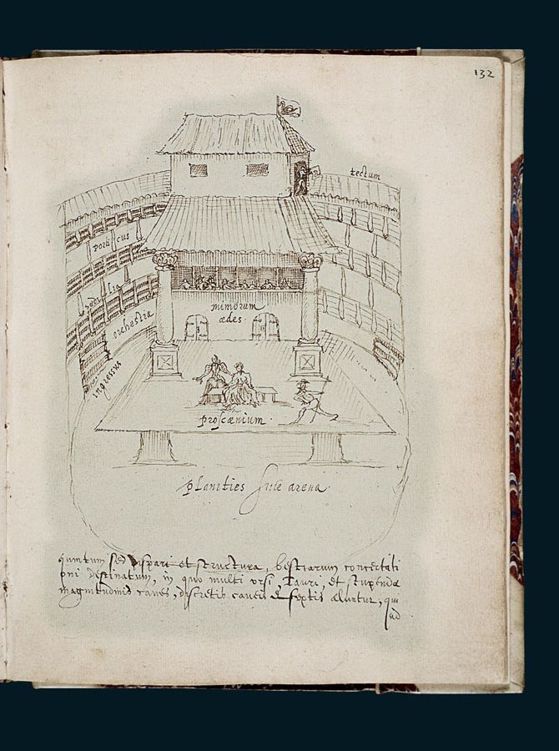 132
tectum
porticus
sedilia
orchestra
mimorum
ædes
ingressus
proscænium
planities sive arena
quintum sed dispari et structura, bestiarum concertati
oni destinatum, in quo multi ursi, Tauri, et stupendæ
magnitudinis canes, discretis caveis & septis aluntur, qui
ad